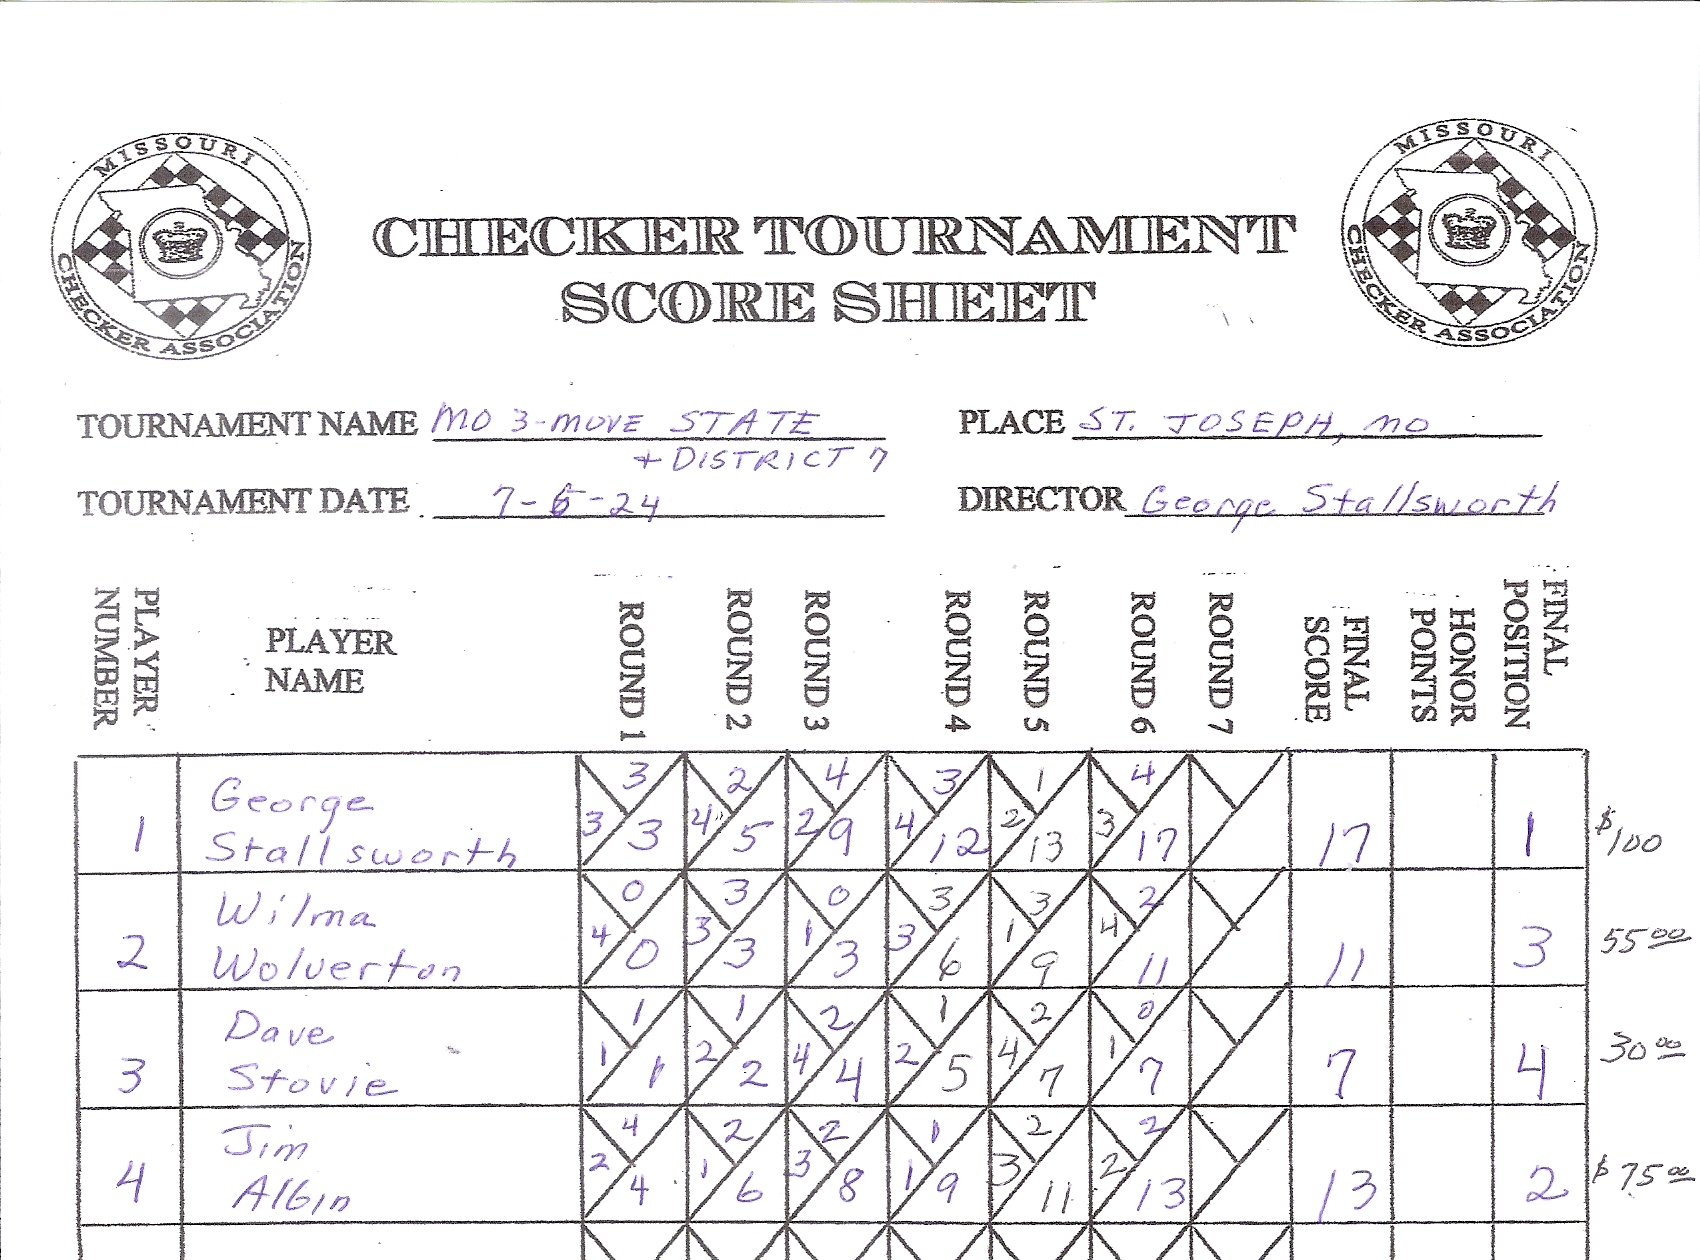 MISSOURI
CHECKER ASSOCIATION
MISSOURI
CHECKER ASSOCIATION
CHECKER TOURNAMENT
SCORE SHEET
TOURNAMENT NAME MO 3-MOVE STATE
+ DISTRICT 7
PLACE ST. JOSEPH, MO
TOURNAMENT DATE 7-6-24
DIRECTOR George Stallsworth
PLAYER NUMBER
PLAYER
NAME
ROUND 1
ROUND 2
ROUND 3
ROUND 4
ROUND 5
ROUND 6
ROUND 7
FINAL SCORE
HONOR POINTS
FINAL POSITION
1 George Stallsworth 3 3 3 2 4 5 4 2 9 3 4 12 1 2 13 4 3 17 17 1 $100
2 Wilma Wolverton 0 4 0 3 3 3 0 1 3 3 3 6 3 1 9 2 4 11 11 3 55 00
3 Dave Stovie 1 1 1 1 2 2 2 4 4 1 2 5 2 4 7 0 1 7 7 4 30 00
4 Jim Albin 4 2 4 2 1 6 2 3 8 1 1 9 2 3 11 2 2 13 13 2 $75 00